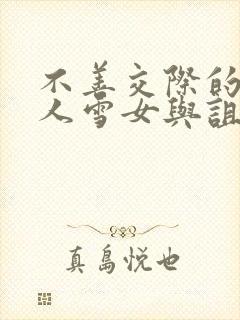 不善交際的
人雪女與詛
真島悅也